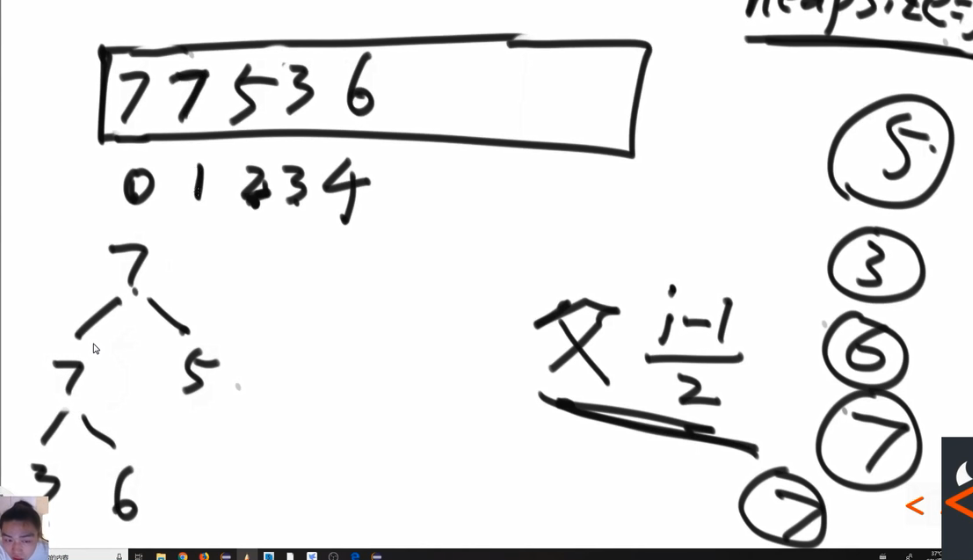 heapsize=
7 7 5 3 6
0 1 2 3 4
7
7 5
3 6
父 i-1
2
5
3
6
7
7
的内容